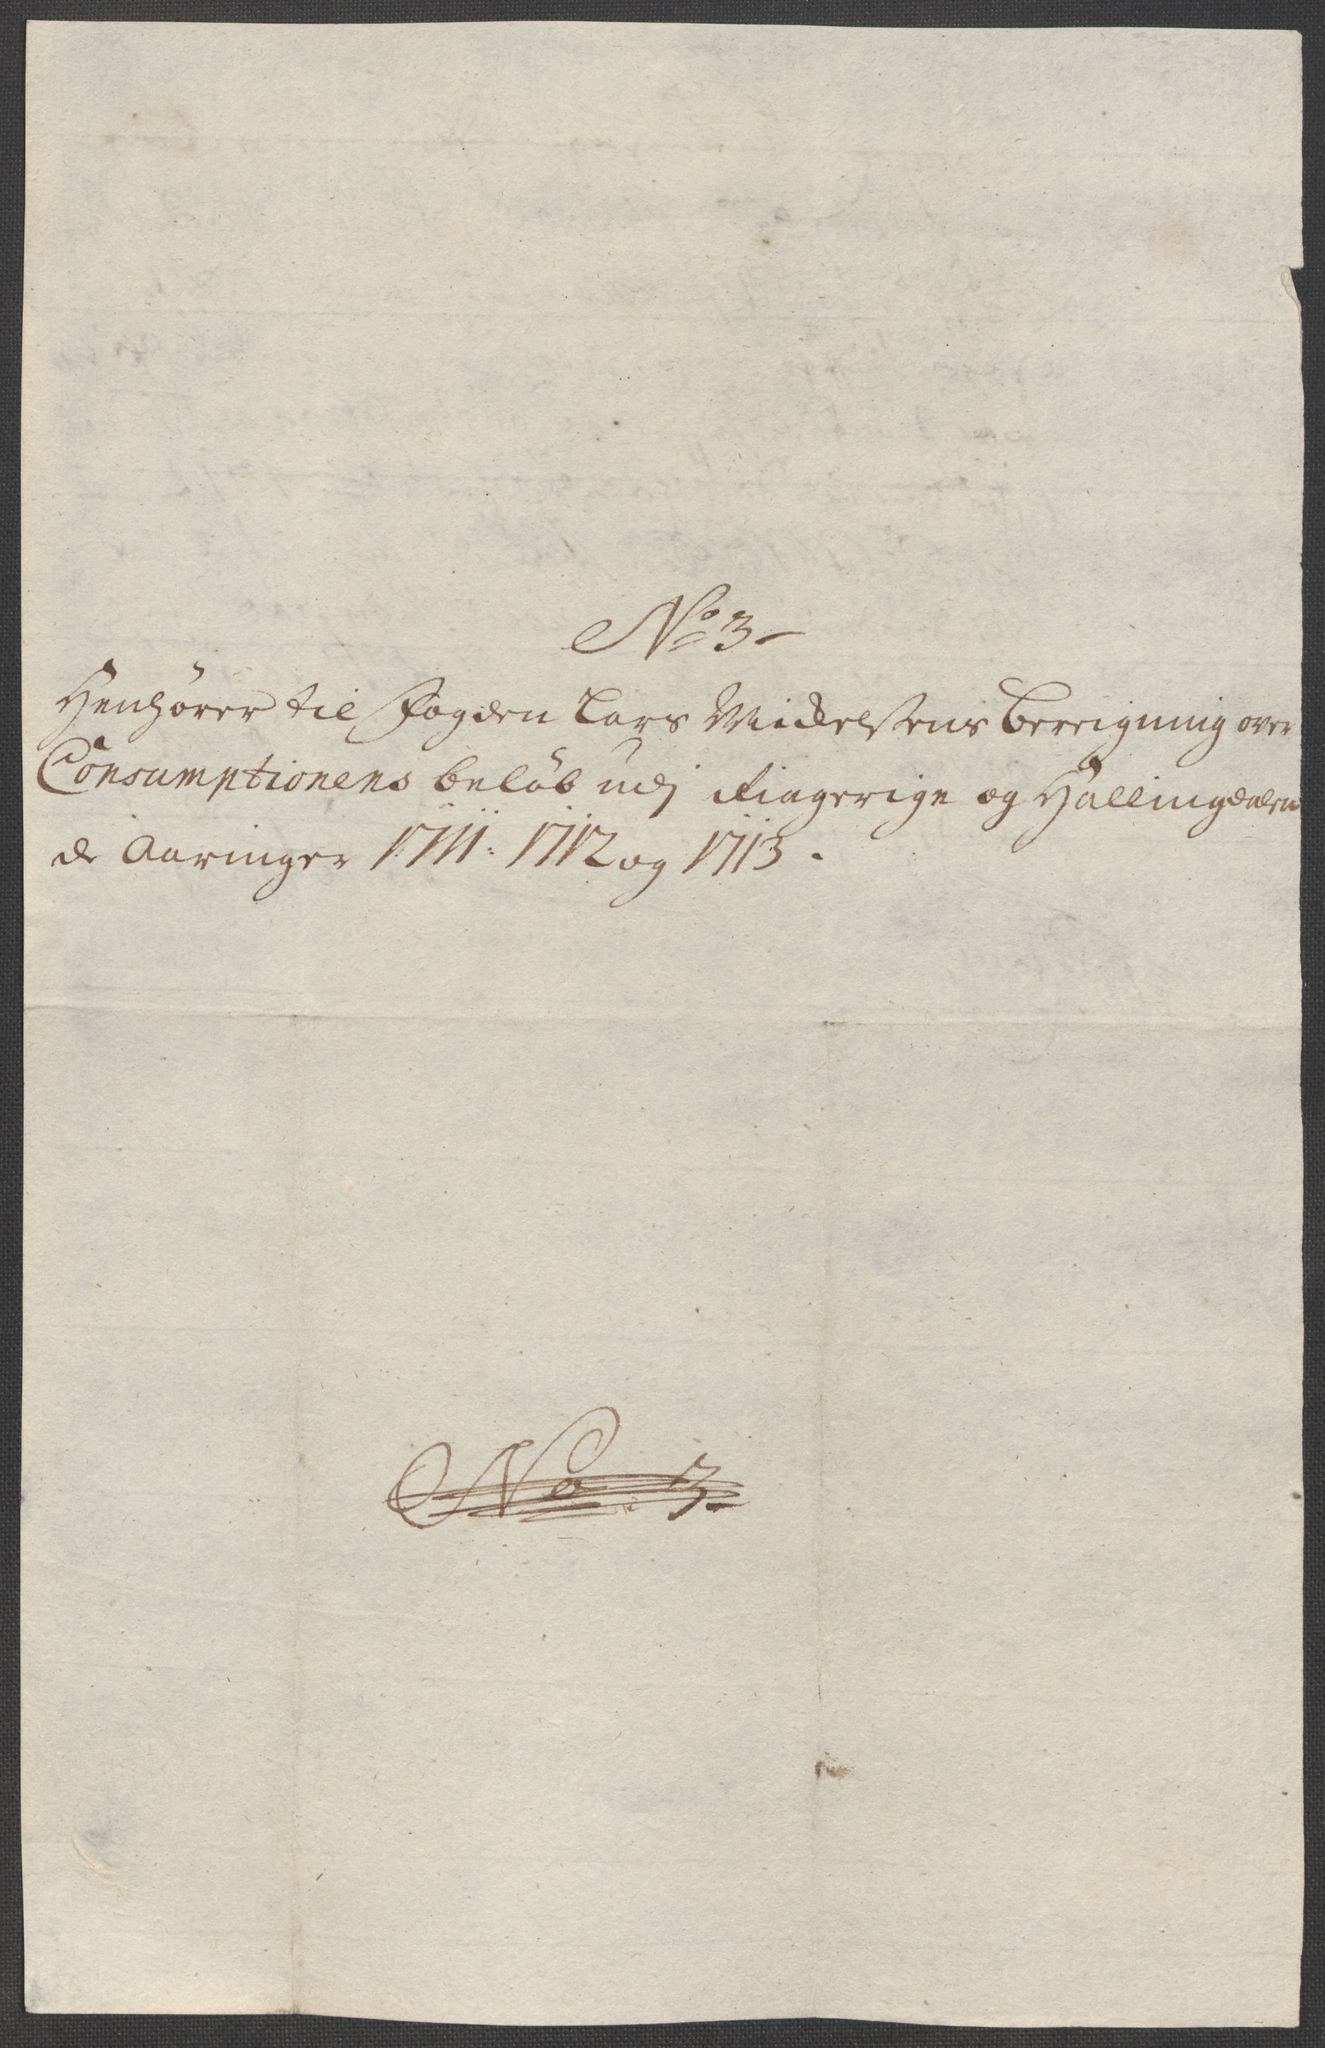 No 3
Henhører til Fogden Lars Mickelsens Bereigning over
Consumptionens beløb udj Ringerige og Hallingdalen
de Aaringer 1711. 1712 og 1713.
No 3.